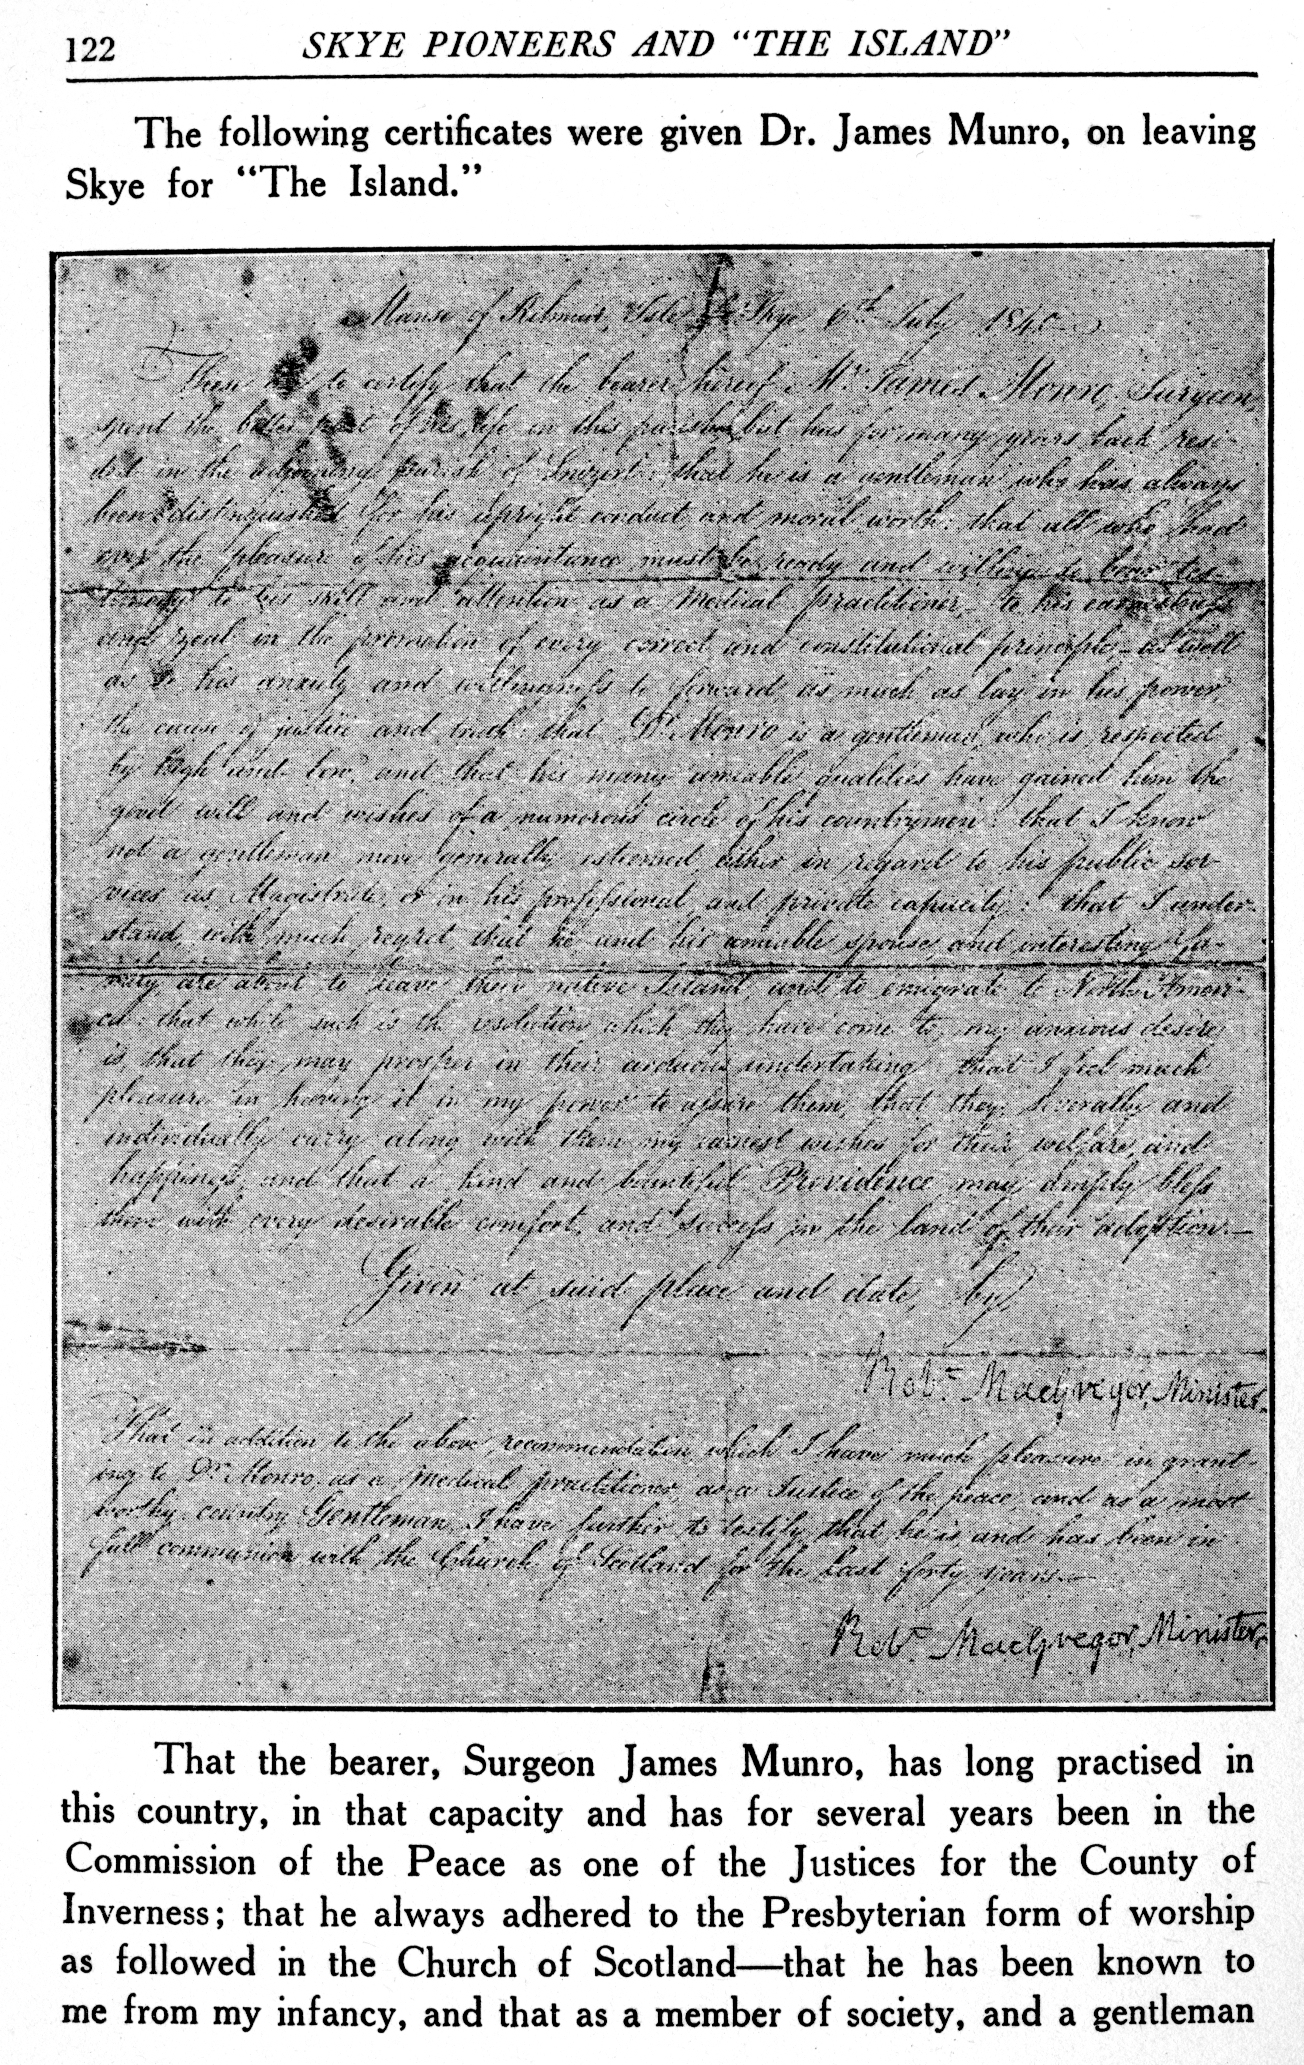 122 SKYE PIONEERS AND “THE ISLAND”
The following certificates were given Dr. James Munro, on leaving
Skye for “The Island.”
Manse of Kilmuir, Isle of Skye, 6th July 1840
These are to certify that the bearer hereof, Mr. James Monro, Surgeon,
spent the better part of his life in this parish but has for many years back resi-
ded in the adjoining parish of Snizort: that he is a gentleman who has always
been distinguished for his upright conduct and moral worth: that all who had
ever the pleasure of his acquaintance must be ready and willing to bear tes-
timony to his skill and attention as a Medical practitioner, to his earnestness
and zeal in the promotion of every correct and constitutional principle – as well
as to his anxiety and willingness to forward, as much as lay in his power,
the cause of justice and truth: that Dr. Monro is a gentleman who is respected
by high and low, and that his many amiable qualities have gained him the
good will and wishes of a numerous circle of his countrymen: that I know
not a gentleman more generally esteemed, either in regard to his public ser-
vices as Magistrate, or in his professional and private capacity: that I under-
stand, with much regret, that he and his amiable spouse, and interesting fa-
mily, are about to leave their native Island, and to emigrate to North Ameri-
ca: that while such is the resolution which they have come to, my anxious desire
is, that they may prosper in their arduous undertaking: that I feel much
pleasure in having it in my power to assure them, that they severally and
individually carry along with them my earnest wishes for their welfare, and
happiness, and that a kind and bountiful Providence may amply bless
them with every desirable comfort, and success in the land of their adoption.—
Given at said place and date, by
Robt. MacGregor, Minister.
That in addition to the above recommendation which I have much pleasure in grant-
ing to Dr. Monro, as a Medical practitioner, as a Justice of the peace, and as a most
worthy country Gentleman, I have further to testify, that he is, and has been in
full communion with the Church of Scotland for the last forty years.—
Robt. MacGregor, Minister.
That the bearer, Surgeon James Munro, has long practised in
this country, in that capacity and has for several years been in the
Commission of the Peace as one of the Justices for the County of
Inverness; that he always adhered to the Presbyterian form of worship
as followed in the Church of Scotland—that he has been known to
me from my infancy, and that as a member of society, and a gentleman